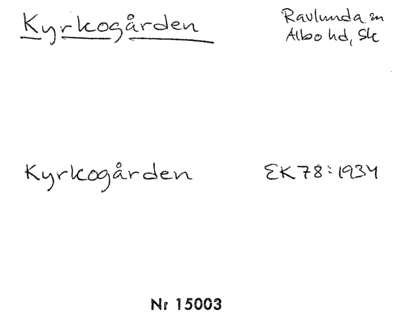 Kyrkogården
Ravlunda sn
Albo hd, Sk
Kyrkogården
EK78:1934
Nr 15003